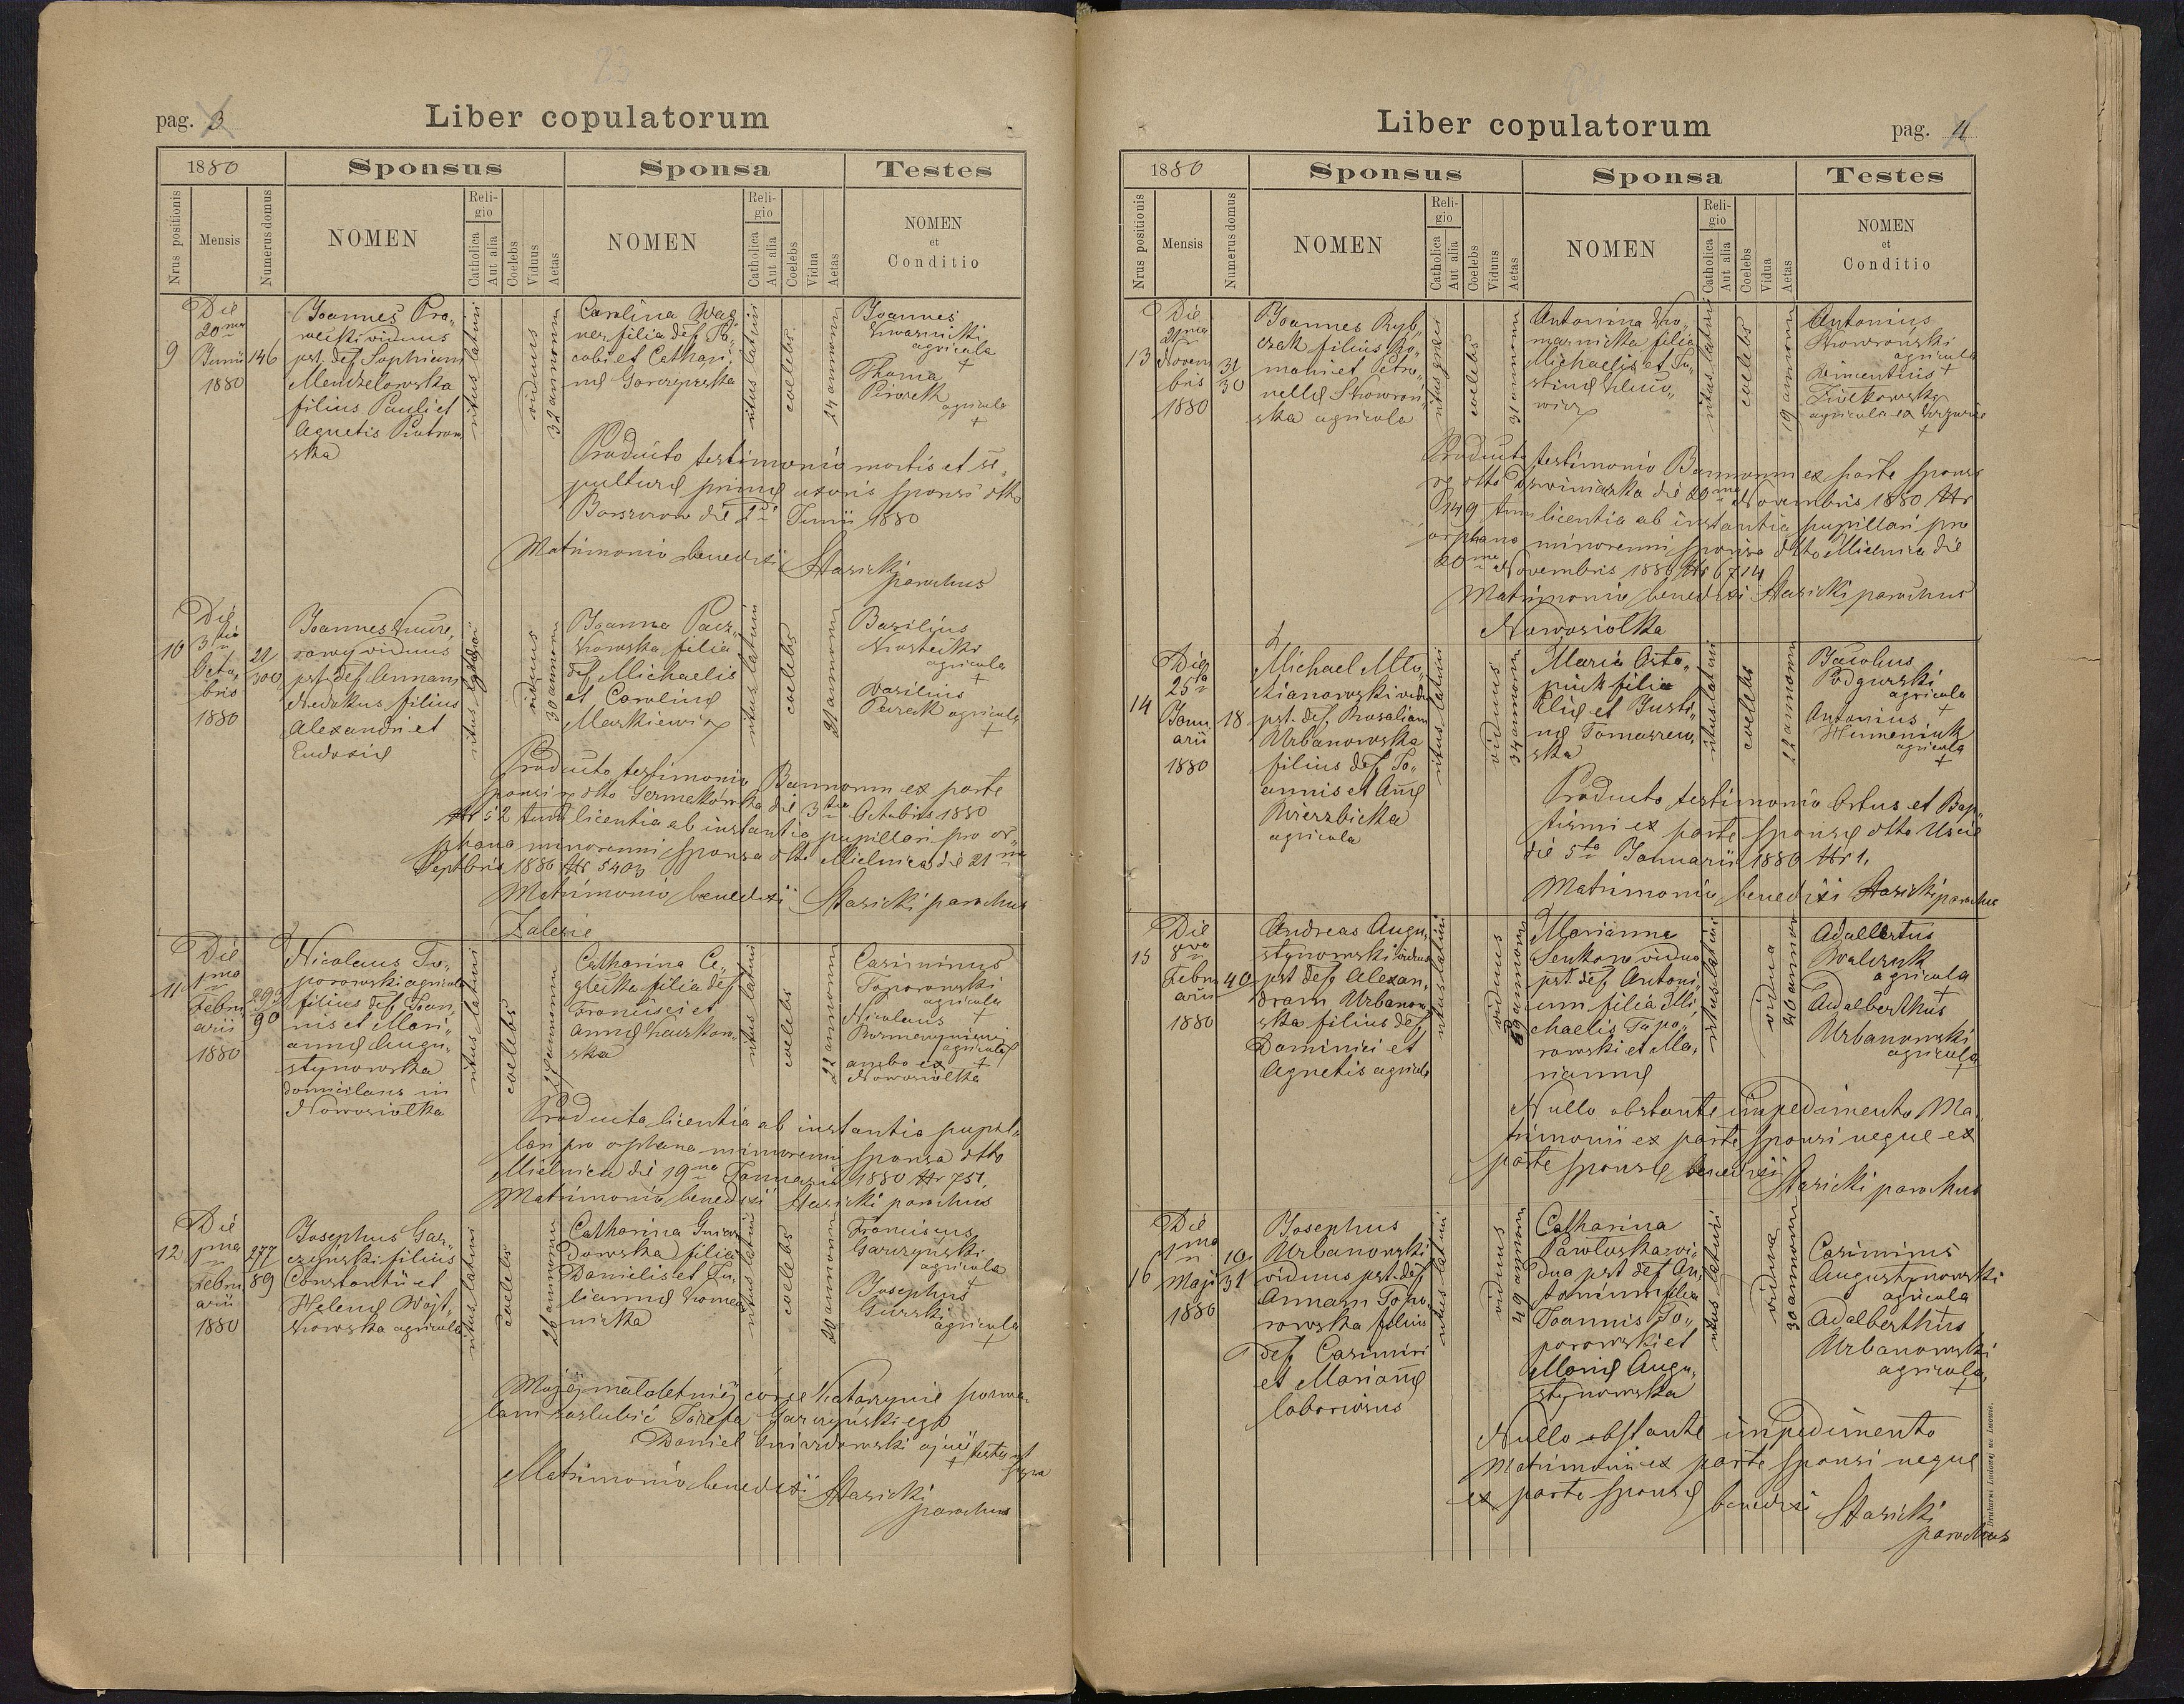 pag. 3
Liber copulatorum
1880
Sponsus
Sponsa
Testes
Nrus positionis
Mensis
Numerus domus
NOMEN
Reli-
gio
Catholica
Aut alia
Coelebs
Viduus
Aetas
NOMEN
Reli-
gio
Catholica
Aut alia
Coelebs
Vidua
Aetas
NOMEN
et
Conditio
9
Die
20ma
Junii
1880
146
Joannes Pro„
recki viduus
pst. def. Sophiam
Menzelowska
filius Pauli et
Agnetis Piotrow
ska
ritus latini
viduus
32 annorum
Carolina Wag
ner filia def. Ja„
cobi et Cathari„
nę Gorczyńska
ritus latini
coelebs
24 annorum
Joannes
Kwasnicki
agricola
+
Thoma
Pirozek
agricola
+
Producto testimonio mortis et se„
pulturę primę uxoris sponsi dtto
Borszczow die 2da Junii 1880
Matrimonio benedixi Stasicki
parochus
10
Die
3tia
Octo„
bris
1880
21/
300
Joannes
viduus
pst. def. Annam
filius
Alexandri et
Eudoxię
viduus
30 annorum
Joanna Pacz„
kowska filia
def. Michaelis
et Carolinę
Markiewicz
ritus latini
coelebs
21 annorum
Basilius
agricola
+
Basilius
agricola
+
Producto testimonio Bannorum ex parte
sponsi dtto Germakówka die 3tia Octobris 1880
Nr 52 tum licentia ab instantia pupillari pro or„
phana minorenni sponsa dtto Mielnica die 21ma
Septbris 1880 Nr 5403
Matrimonio benedixi Stasicki parochus
Zalesie
11
Die
1ma
Febru
arii
1880
292/
90
Nicolaus To„
porowski agricola
filius def. Joan„
nis et Mari„
annę Augu„
stynowska
domicilans in
Nowosiolka
ritus latini
coelebs
24 annorum
Catharina Ce„
glecka filia def
Francisci et
Annę
ska
ritus latini
coelebs
22 annorum
Casimirus
Toporowski
agricola
Nicolaus
agricola
ambo ex
Nowosiolka
+
Producta licentia ab instantia pupil„
lari pro orphana minorenni sponsa dtto
Mielnica die 19na Januarii 1880 Nr 751.
Matrimonio benedixi Stasicki parochus
12
Die
1ma
Febru
arii
1880
277
89
Josephus Gar„
czyński filius
Constantii et
Helenę Wojt„
kowska agricola
ritus latini
coelebs
26 annorum
Catharina Gniaz
dowska filia
Danielis et Ju„
liannę Komar
nicka
ritus latini
coelebs
20 annorum
Franciscus
Garczyński
agricola
+
Josephus
Gurski
agricola
+
Mojéj małoletniéj córce Katarzynie pozwa„
lam zaslubić Józefa Garczyńskiego
Daniel Gniazdowski ojciec testes ut
+ supra
Matrimonio benedixi Stasicki
parochus
Liber copulatorum
pag. 4
1880
Sponsus
Sponsa
Testes
Nrus positionis
Mensis
Numerus domus
NOMEN
Reli-
gio
Catholica
Aut alia
Coelebs
Viduus
Aetas
NOMEN
Reli-
gio
Catholica
Aut alia
Coelebs
Vidua
Aetas
NOMEN
et
Conditio
13
Die
21ma
Novem
bris
1880
31
30
Joannes Ryb„
czak filius Ro„
mani et Petro„
nellę Skowroń„
ska agricola
coelebs
31 annorum
Antonina Ko„
marnicka filia
Michaelis et Ju„
stinę
wicz
ritus latini
coelebs
19 annorum
Antonius
Skowronski
agricola
+
Vincentius
Ziołkowski
agricola ex
+
Producto testimonio Bannorum ex parte sponsi
dtto die 20ma Novembris 1880 Nr
149 tum licentia ab instantia pupillari pro
orphana minorenni sponsa dtto Mielnica die
20ma Novembris 1880 Nr 6714
Matrimonio benedixi Stasicki parochus
Nowosiolka
14
Die
25ta
Janu
arii
1880
18
Michael
viduus
pst. def. Rosaliam
Urbanowska
filius def. Jo„
annis et Annę
Wierzbicka
agricola
ritus latini
viduus
34 annorum
Maria Osta„
piuk filia
Elię et Justi„
nę Tomaszew„
ska
ritus latini
coelebs
22 annorum
Jacobus
Podgurski
agricola
+
Antonius
Humeniuk
agricola
+
Producto testimonio Ortus et Bap„
tismi ex parte sponsę dtto Uscie
die 5ta Januarii 1880 Nr 1.
Matrimonio benedixi Stasicki parochus
15
Die
8va
Febru
arii
1880
40
Andreas Augu„
stynowski viduus
pst. def. Alexan„
dram Urbanow
ska filius def
Dominici et
Agnetis agricola
ritus latini
viduus
Marianna
Senkow vidua
pst. def. Antoni„
um filia Mi„
chaelis Topo„
rowski et Ma„
riannę
ritus latini
vidua
40 annorum
Adalbertus
Walczuk
agricola
+
Adalberthus
Urbanowski
agricola
+
Nullo obstante impedimento Ma„
trimonii ex parte sponsi neque ex
parte sponsę benedixi
Stasicki parochus
16
Die
1ma
Maji
1880
10
31
Josephus
Urbanowski
viduus pst. def.
Annam Topo„
rowska filius
def. Casimiri
et Mariannę
laboriosus
ritus latini
viduus
49 annorum
Catharina
Pawłoska vi„
dua pst def. An„
tonium filia
Joannis To„
porowski et
Marię Augu„
stynowska
ritus latini
vidua
30 annorum
Casimirus
Augustynowski
agricola
Adalberthus
Urbanowski
agricola
+
Nullo obstante impedimento
Matrimonii ex parte sponsi neque
ex parte sponsę benedixi Stasicki
parochus
Drukarni Ludowej we Lwowie.